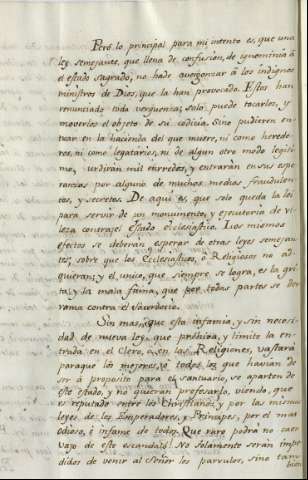 Pero lo principal para mi intento es, que una
ley semejante, que llena de confusion, de ignominia a
el estado sagrado, no hade avergonzar á los indignos
ministros de Dios, que la han provocado. Estos han
renunciado toda verguenza; solo puede tocarles, y
moverles el objeto de su codicia. Sino pudieren en-
trar en la hacienda del que muere, ni como herede-
ros, ni como legatarios, ni de algun otro modo legiti-
mo, urdiran mil enrredos, y entrarán en sus espe-
ranzas por alguno de muchos medios fraudulen-
tos, y secretos. De aqui es, que solo queda la lei
para servir de un monumento, y executoria de vi-
leza contra el estado eclesiastico. Los mismos
efectos se deberán esperar de otras leyes semejan-
tes, sobre que los Eclesiasticos, ó Religiosos no ad-
quieran; y el unico, que siempre se logra, es la gri-
ta, y la mala fama, que por todas partes se de-
rrama contra el Sacerdocio.
Sin mas, que esta infamia, y sin necesi-
dad de nueva ley, que prohiva, y limite la en-
trada en el Clero, ó en las Religiones, vastará
paraque los mejores, ó todos los que havian de
ser á proposito para el santuario, se aparten de
este estado, y no quieran profesarlo, viendo, que
es reputado entre los Christianos, y por las mismas
leyes de los Emperadores, y Principes, por el mas
odioso, é infame de todos. Que raro podrá no caer
bajo de este escandalo! No solamente serán impe-
didos de venir al Señor los parvulos, sino tam-
bien